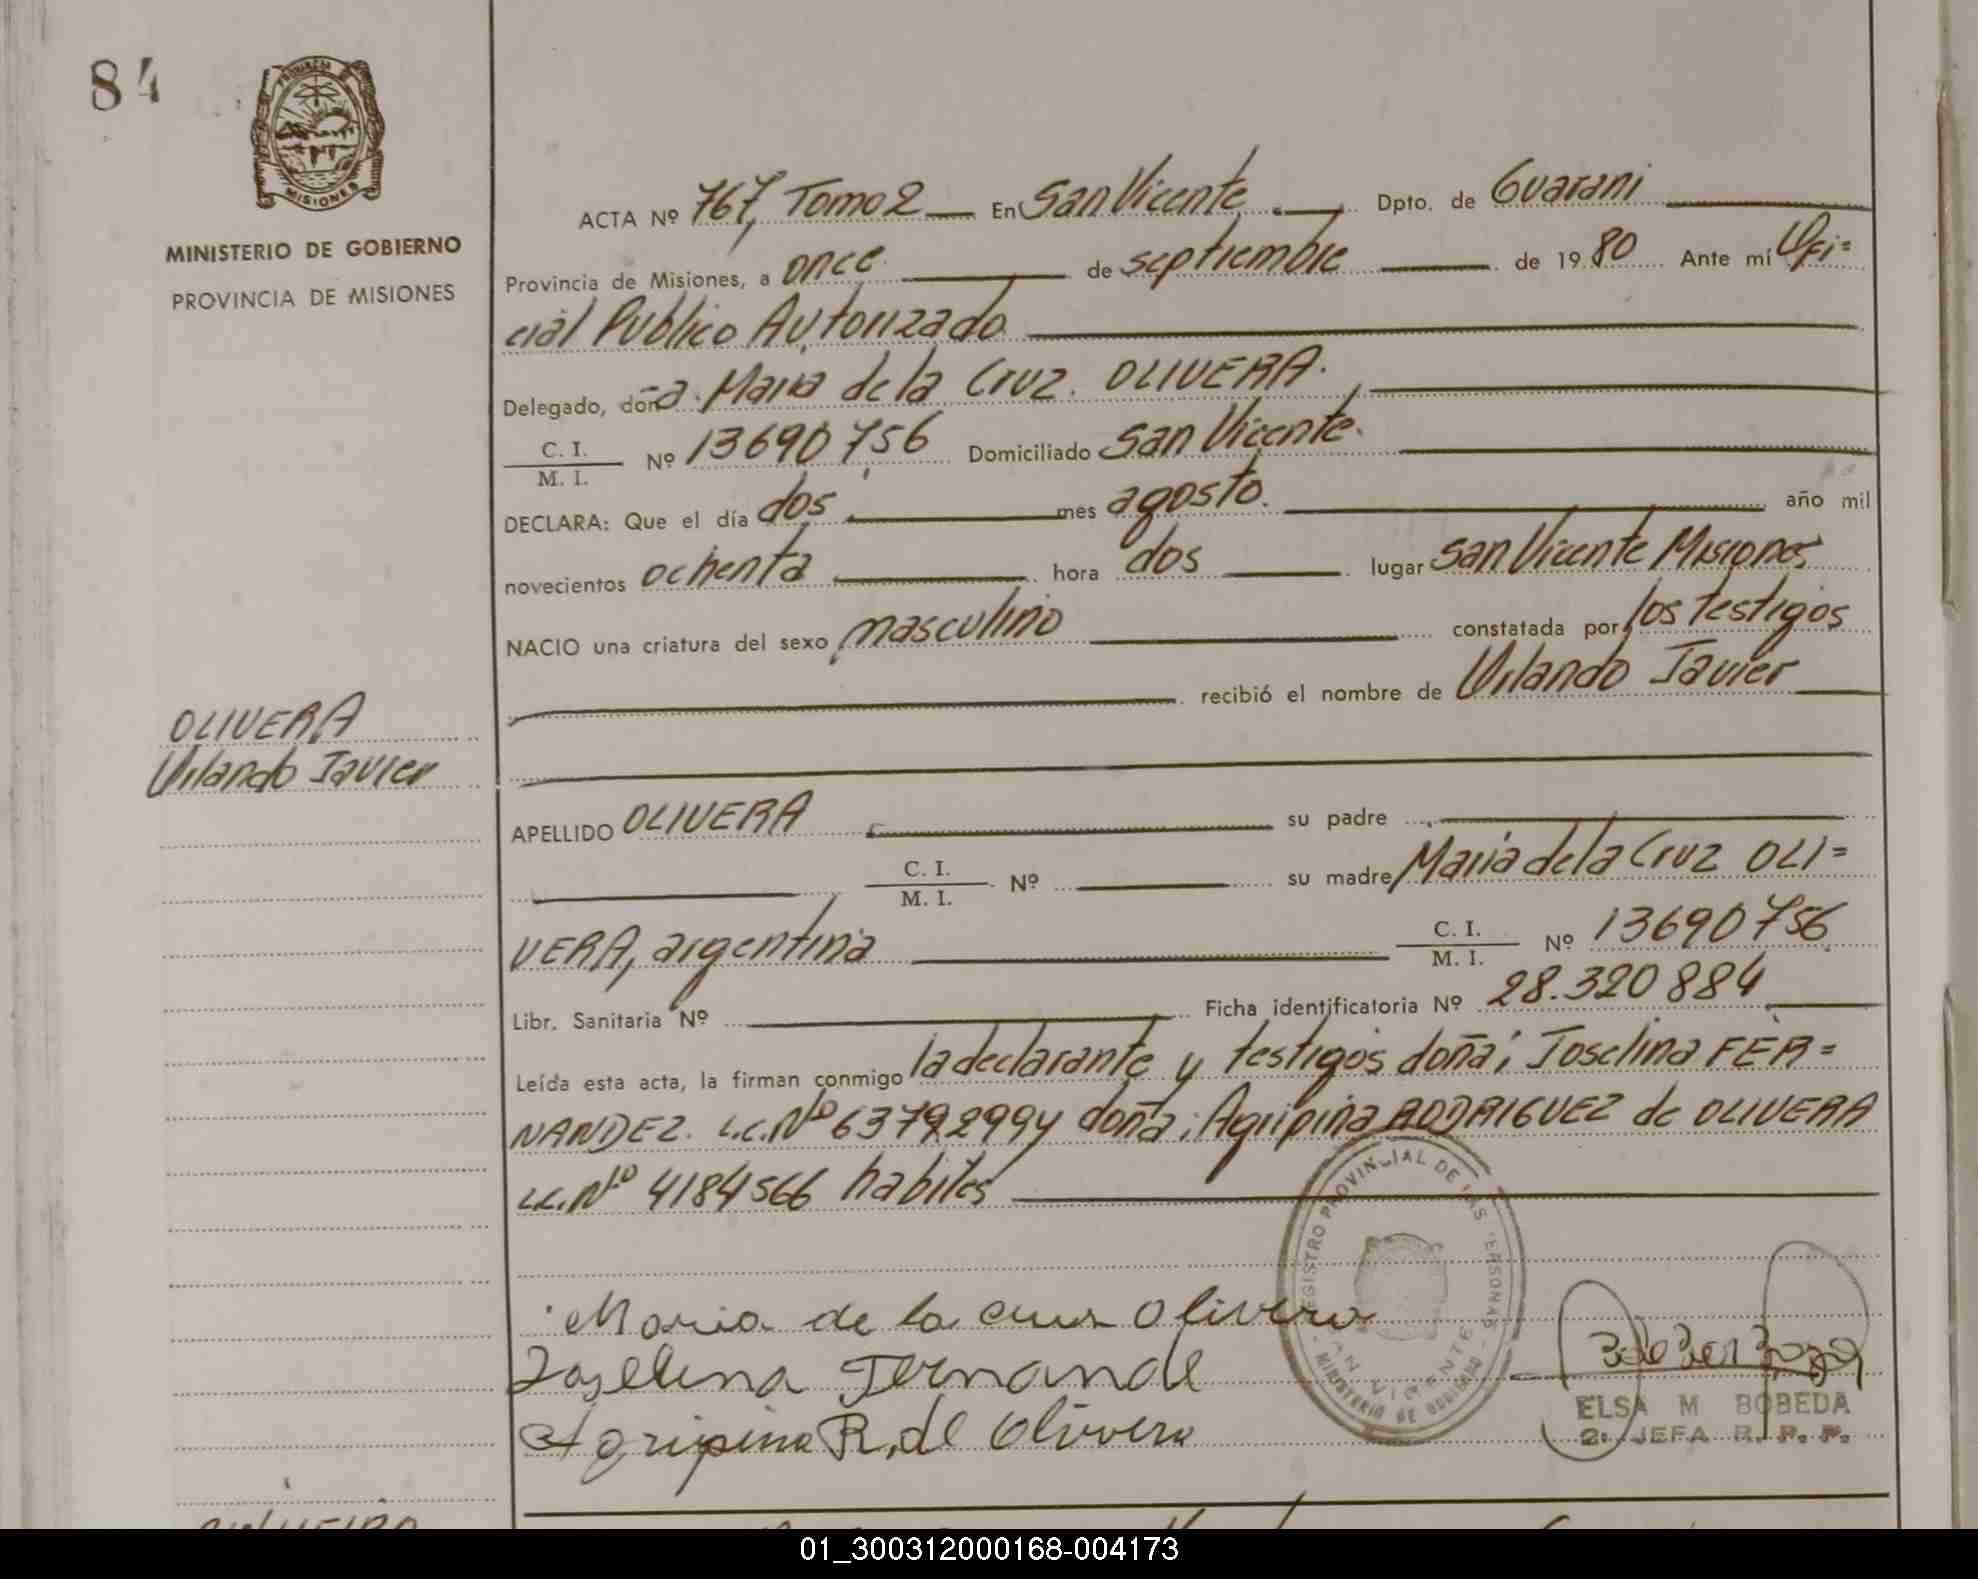 84
PROVINCIA DE
MISIONES
MINISTERIO DE GOBIERNO
PROVINCIA DE MISIONES
ACTA Nº 767, Tomo 2 En San Vicente Dpto. de Guarani
Provincia de Misiones, a once de septiembre de 1980 Ante mí Ofi=
cial Publico Autorizado
Delegado, doña Maria de la Cruz OLIVERA.
C. I. / M. I. Nº 13690756 Domiciliado San Vicente.
DECLARA: Que el día dos mes agosto. año mil
novecientos ochenta hora dos lugar San Vicente Misiones
NACIO una criatura del sexo masculino constatada por los testigos
recibió el nombre de Orlando Javier
OLIVERA
Orlando Javier
APELLIDO OLIVERA su padre
C. I. / M. I. Nº su madre Maria de la Cruz OLI=
VERA, argentina C. I. / M. I. Nº 13690756
Libr. Sanitaria Nº Ficha identificatoria Nº 28.320884
Leída esta acta, la firman conmigo la declarante y testigos doña; Joselina FER=
NANDEZ. L.C.Nº 63792994 doña; Agripina RODRIGUEZ de OLIVERA
L.C.Nº 4184566 habiles
Maria de la crus Olivera
Joselina Fernande
Agripina R. de Olivera
REGISTRO PROVINCIAL DE LAS PERSONAS
SAN VICENTE
MINISTERIO DE GOBIERNO
ELSA M BOBEDA
2: JEFA R. P. P.
01_300312000168-004173